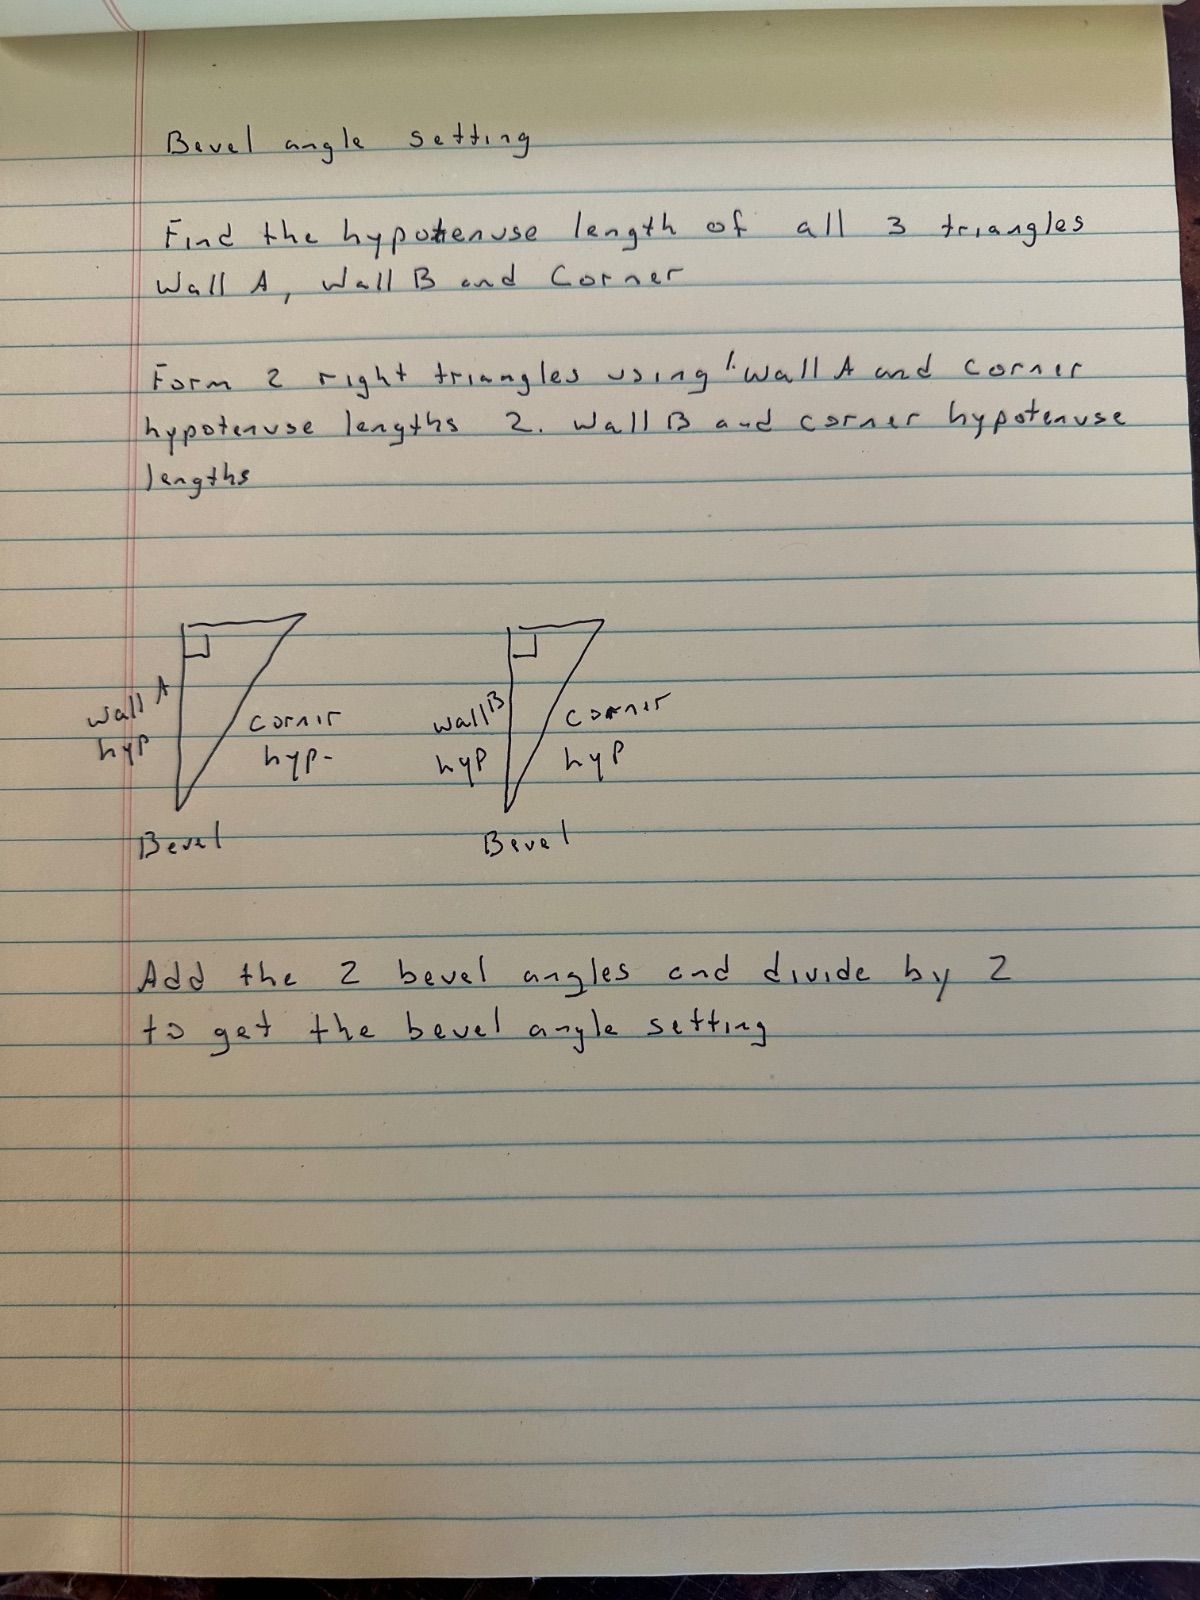 Bevel angle setting
Find the hypotenuse length of all 3 triangles
Wall A, Wall B and Corner
Form 2 right triangles using 1. Wall A and Corner
hypotenuse lengths 2. Wall B and corner hypotenuse
lengths
Wall A
hyp
corner
hyp-
Bevel
Wall B
hyp
corner
hyp
Bevel
Add the 2 bevel angles and divide by 2
to get the bevel angle setting